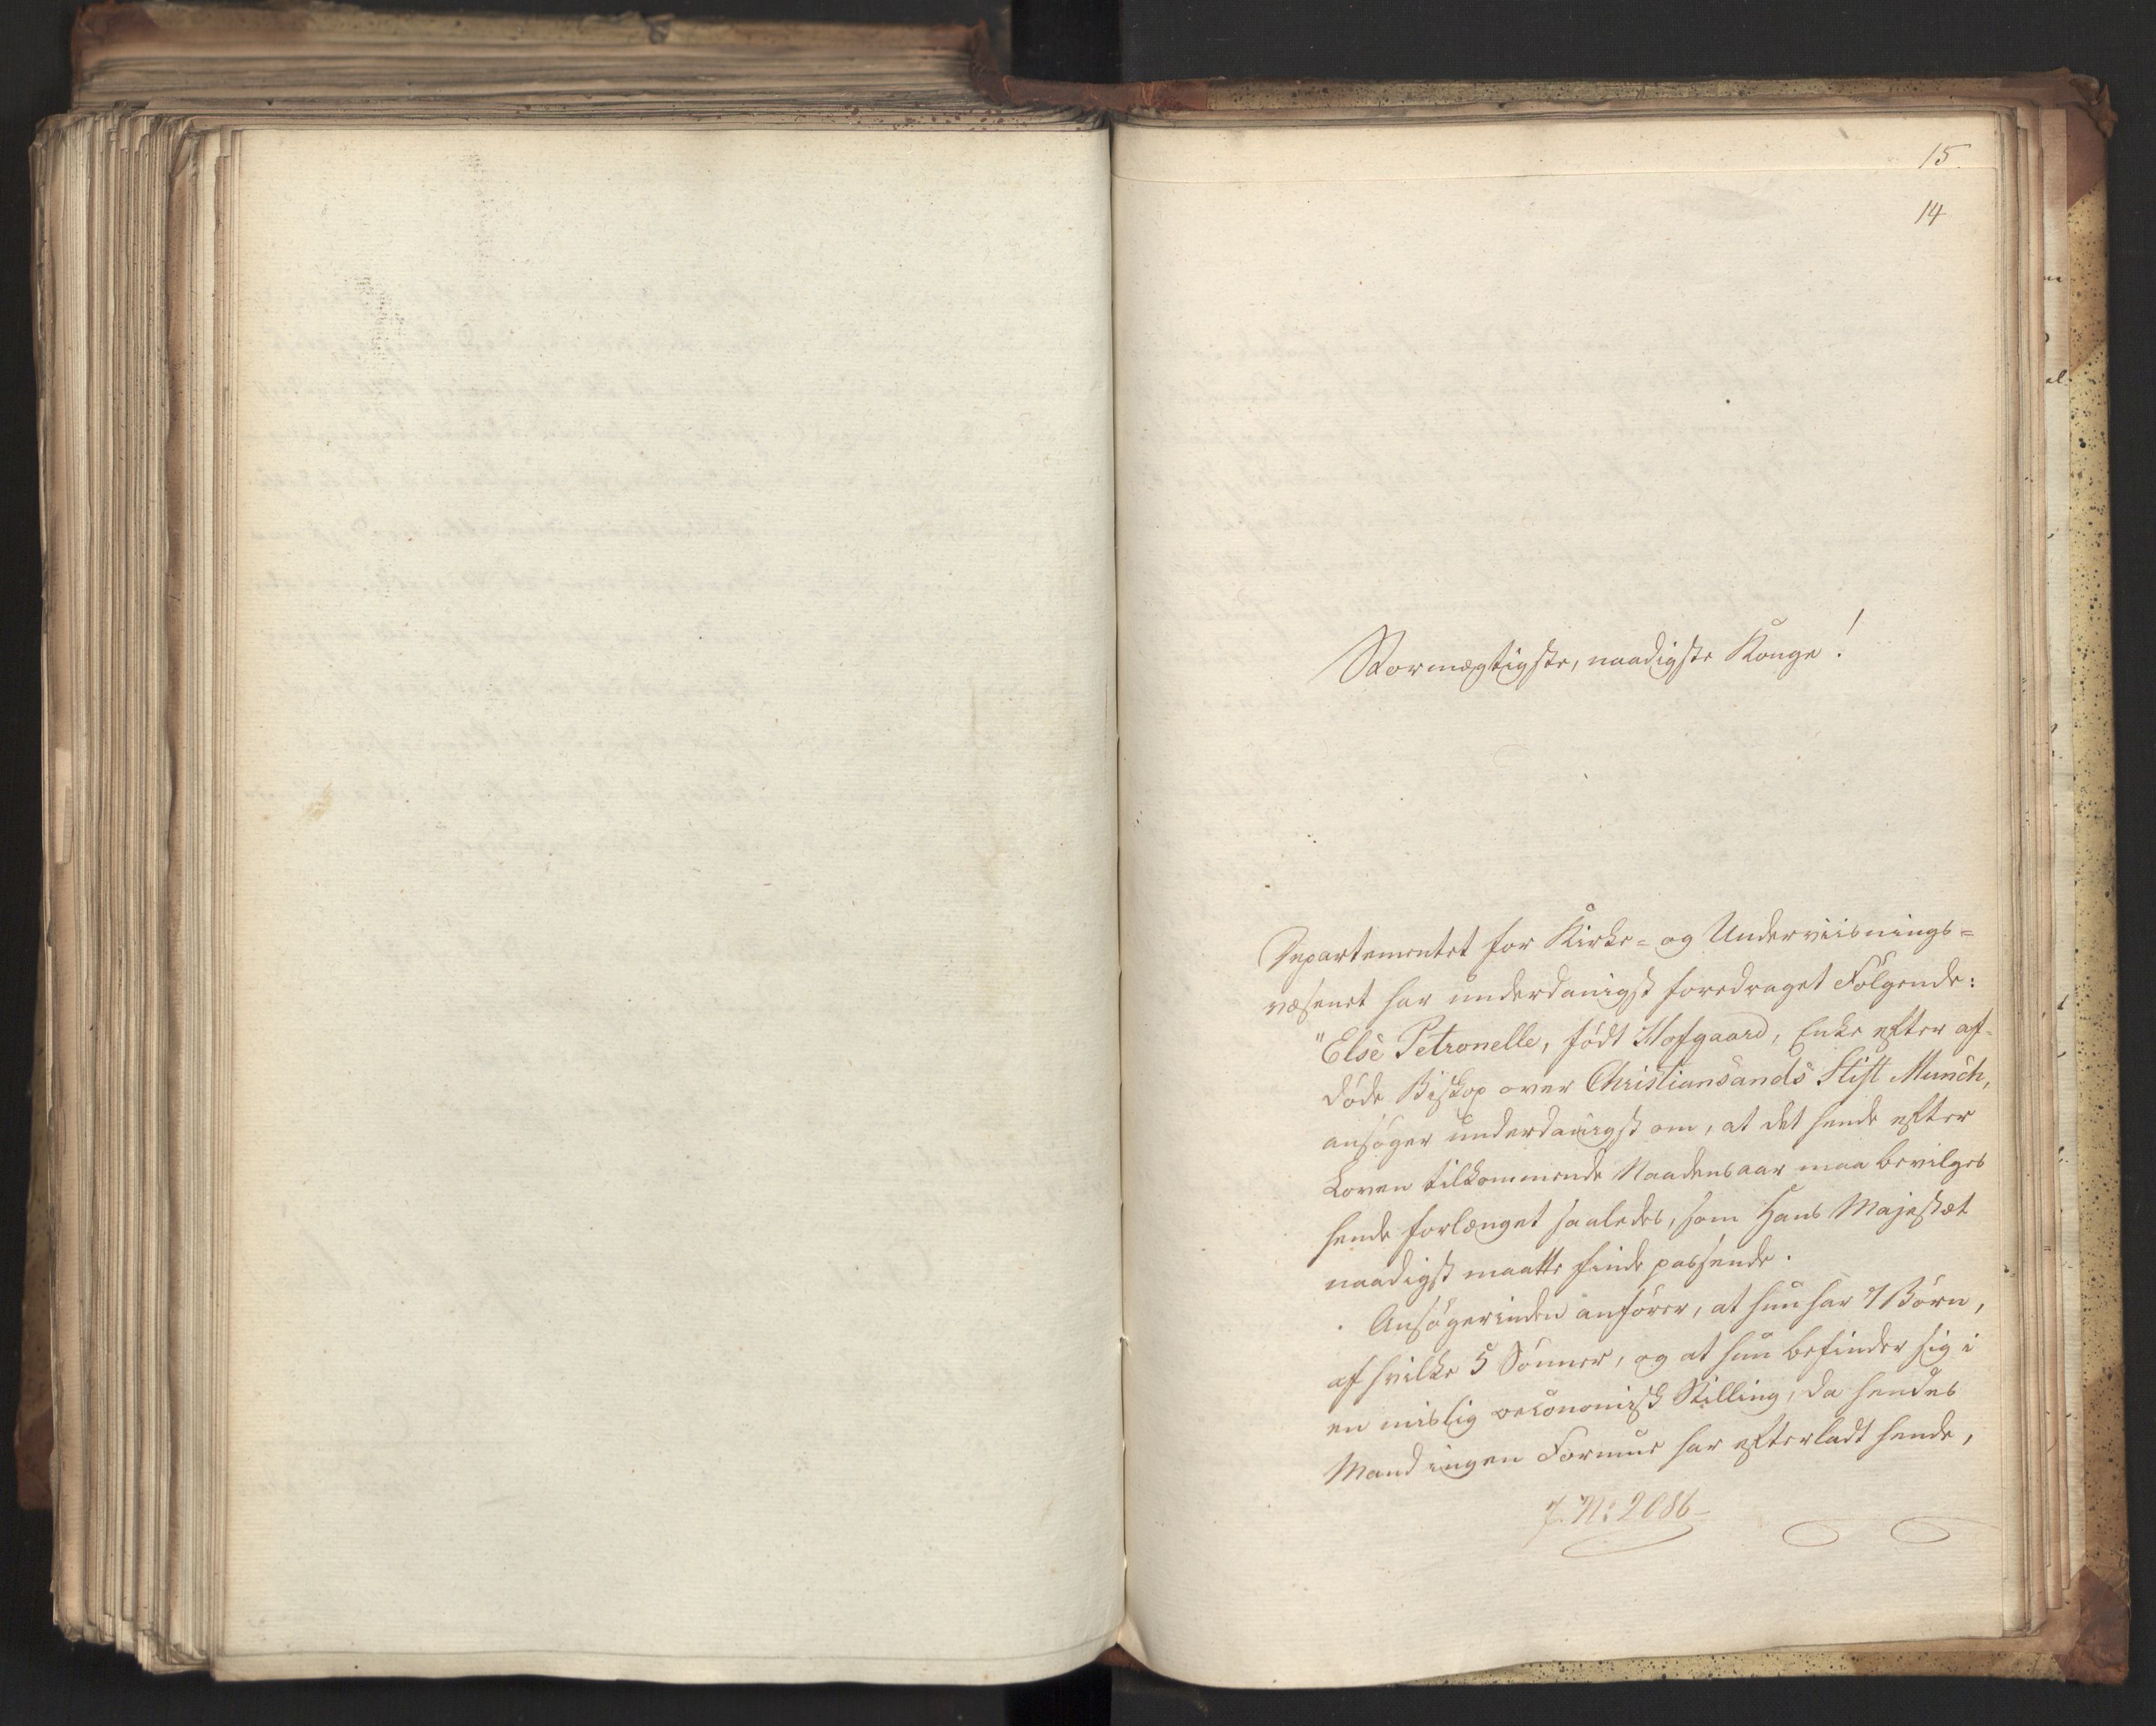 15.
14
Stormægtigste, naadigste Konge!
Departementet for Kirke- og Underviisnings-
væsenet har underdanigst foredraget Følgende:
"Else Petronelle, født Hofgaard, Enke efter af-
døde Biskop over Christiansands Stift Munch,
ansøger underdanigst om, at det hende efter
Loven tilkommende Naadensaar maa bevilges
hende forlænget saaledes, som Hans Majestæt
naadigst maatte finde passende.
Ansøgerinden anfører, at hun har 7 Børn,
af hvilke 5 Sønner, og at hun befinder sig i
en mislig oeconomisk Stilling, da hendes
Mand ingen Formue har efterladt hende,
J. No: 2086-